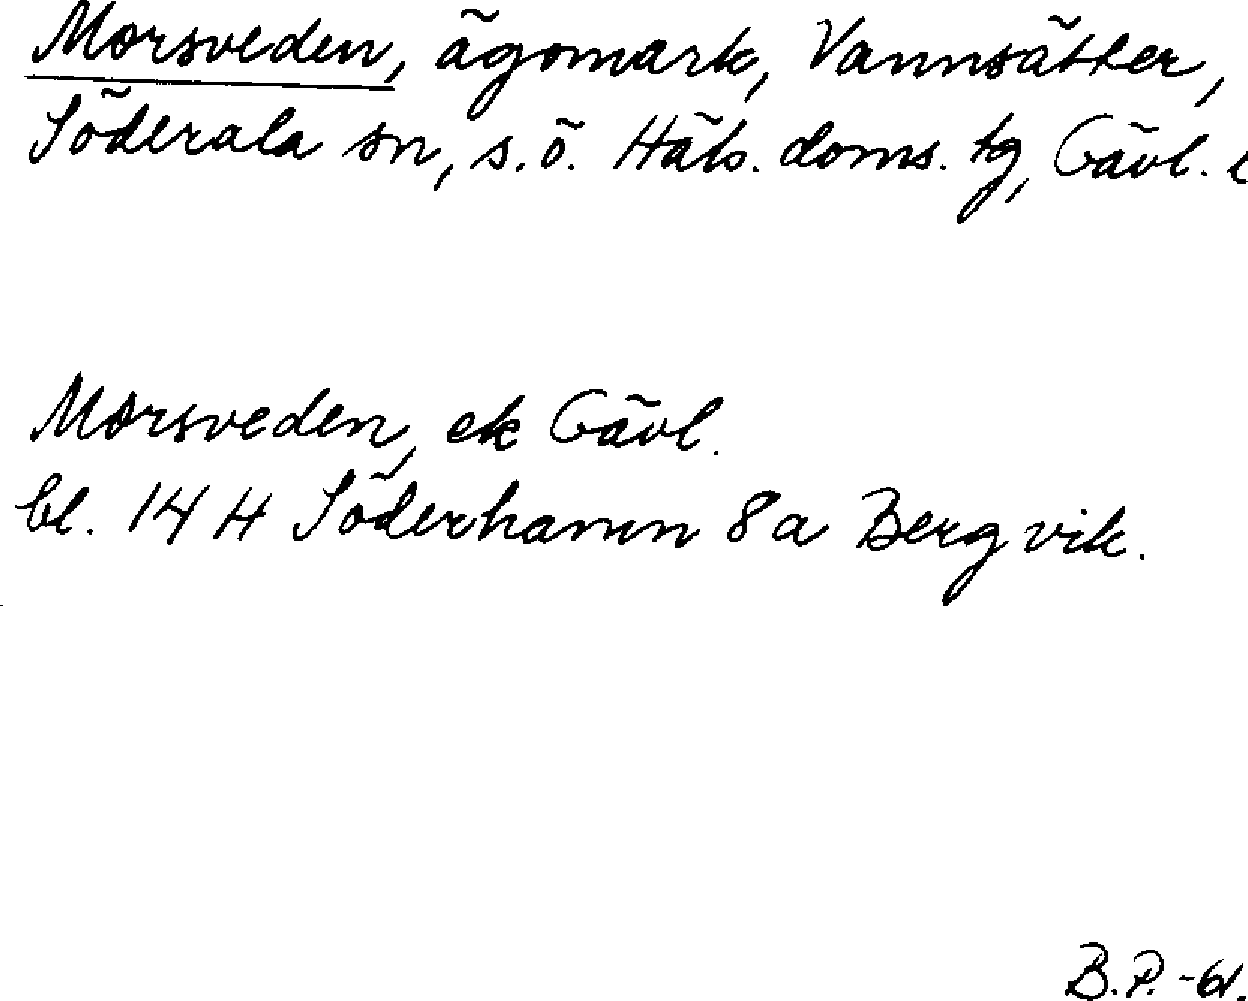 Morsveden, ägomark, Vannsätter,
Söderala sn, s.ö. Häls. doms. tg, Gävl. l
Morsveden, ek Gävl.
bl. 14 H Söderhamn 8a Bergvik.
B.P. -61.